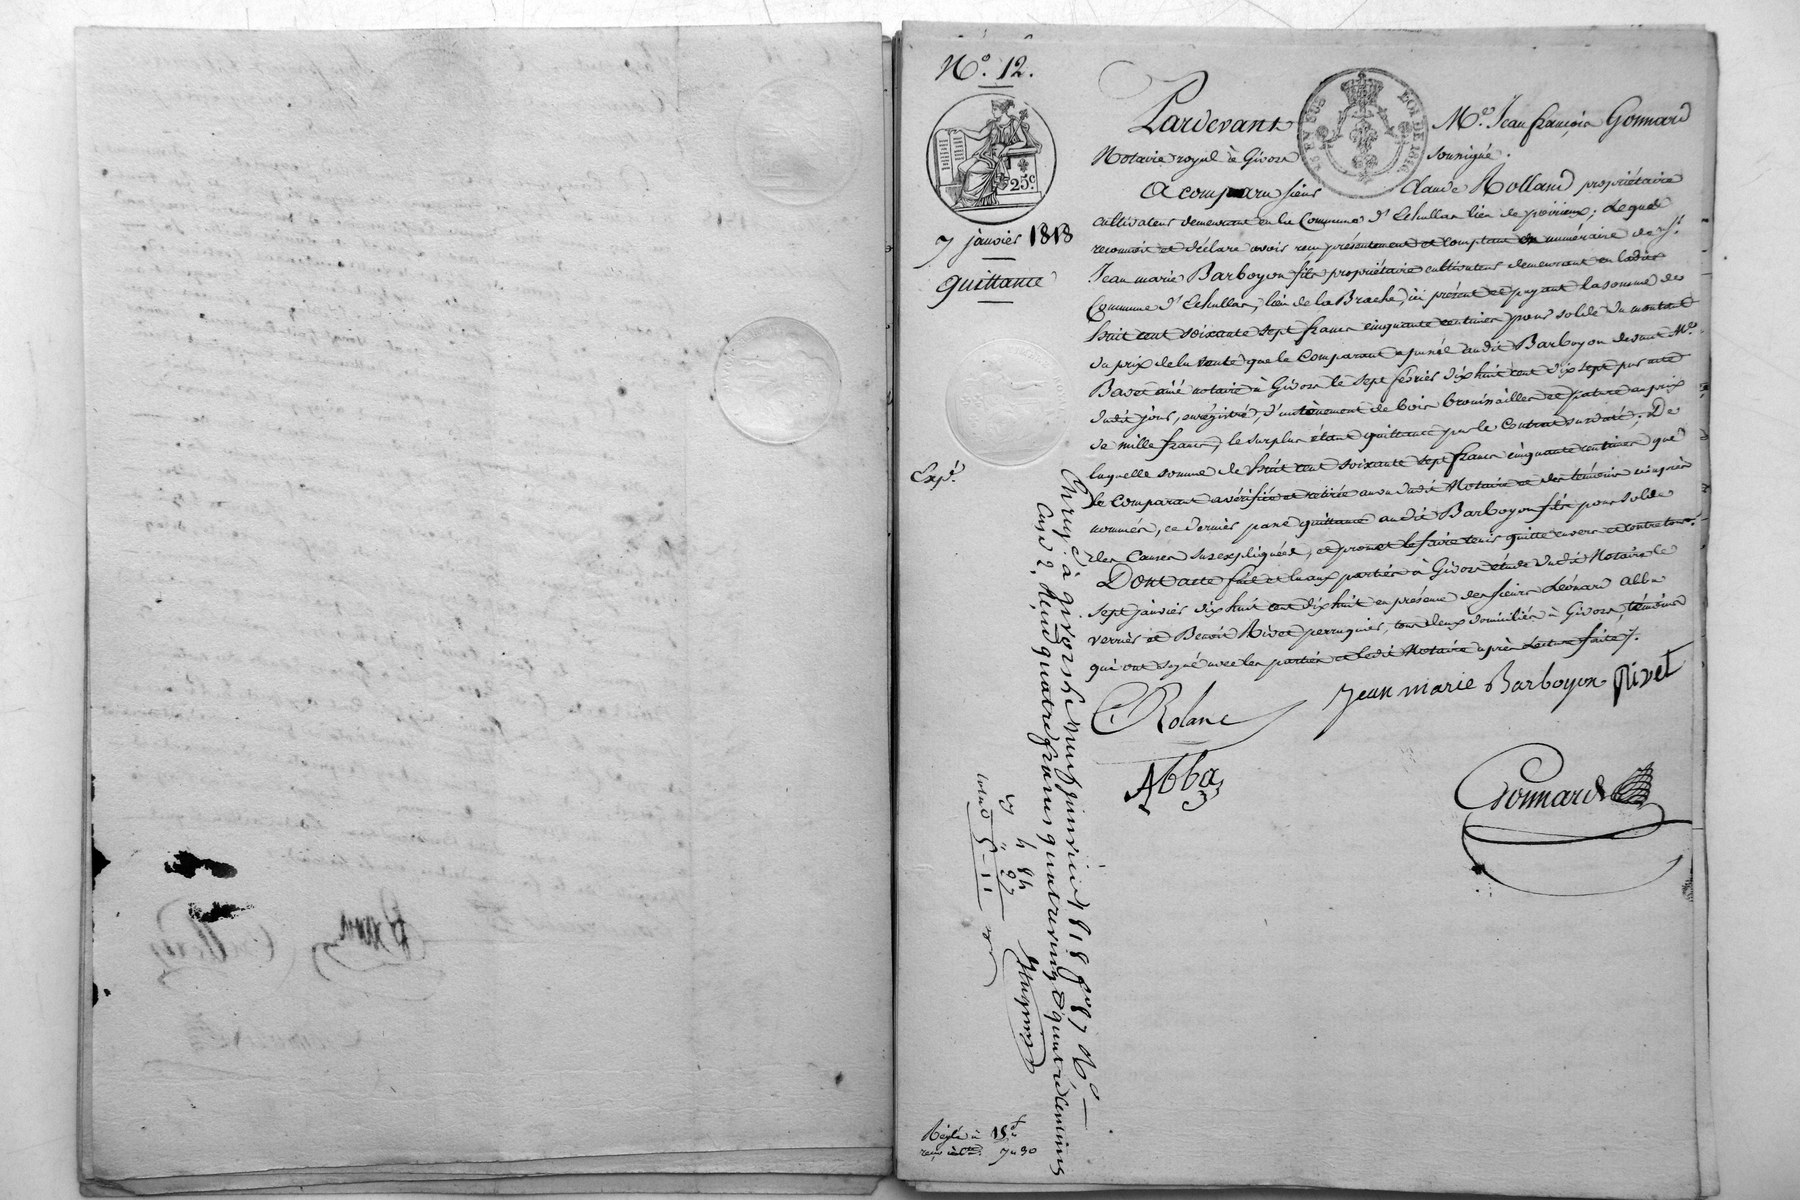 N.° 12.
25.c
7 janvier 1818
quittance
Expé.
Pardevant M.e Jean françois Gonnard
Notaire royal à Givors soussigné.
A comparu sieur Claude Rolland propriétaire
cultivateur demeurant en la Commune d'Echallas lieu de poirieux; Lequel
reconnait et déclare avoir reçu présentement et comptant en numéraire de s.r
Jean marie Barboyon fils propriétaire cultivateur demeurant en ladite
Commune d'Echallas, lieu de la Brache, ici présent et payant la somme de
huit cent soixante sept francs cinquante centimes pour solde du montant
du prix de la vente que le Comparant a passé audit Barboyon devant M.e
Bavet ainé notaire à Givors le sept février dix huit cent dix sept par acte
dudit jour, enregistré, d'un tènement de bois broussailles et pature au prix
de mille francs, le surplus étant quittancé par le Contrat susdaté; De
laquelle somme de huit cent soixante sept francs cinquante centimes que
le Comparant a vérifiée et retirée au vu dudit Notaire et des témoins ci après
nommés, ce dernier passe quittance audit Barboyon fils pour solde
des Causes susexpliquées, et promet le faire tenir quitte envers et contre tous.
Dont acte fait et lu aux parties à Givors étude dudit Notaire le
sept janvier dix huit cent dix huit en présence des sieurs Léonard abba
verrier et Benoit Rivet perruquier, tous deux domiciliés à Givors, témoins
qui ont signé avec les parties et ledit Notaire après Lecture faite./.
C Rolanc
Jean marie Barboyon
Rivet
Abba
Gonnard
Enregé à givors le neuf janvier 1818 f.o 87 R.o
Case 2, Reçu quatre francs quatre vingt quatre centimes
4 84
Réglé à 15f
reçu 7 „ 30